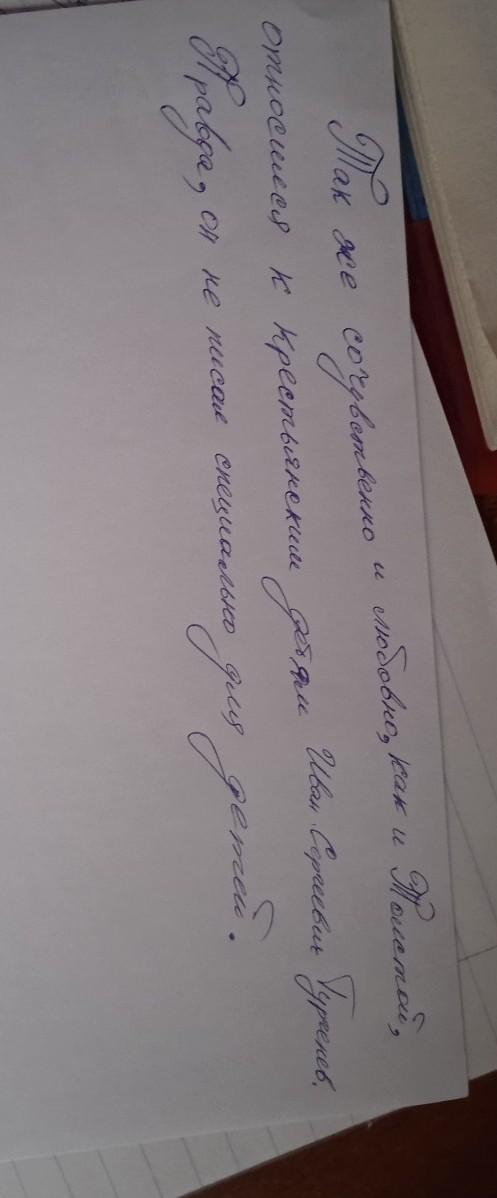 Так же сочувственно и любовно, как и Толстой,
относился к крестьянским детям Иван Сергеевич Тургенев.
Правда, он не писал специально для детей.